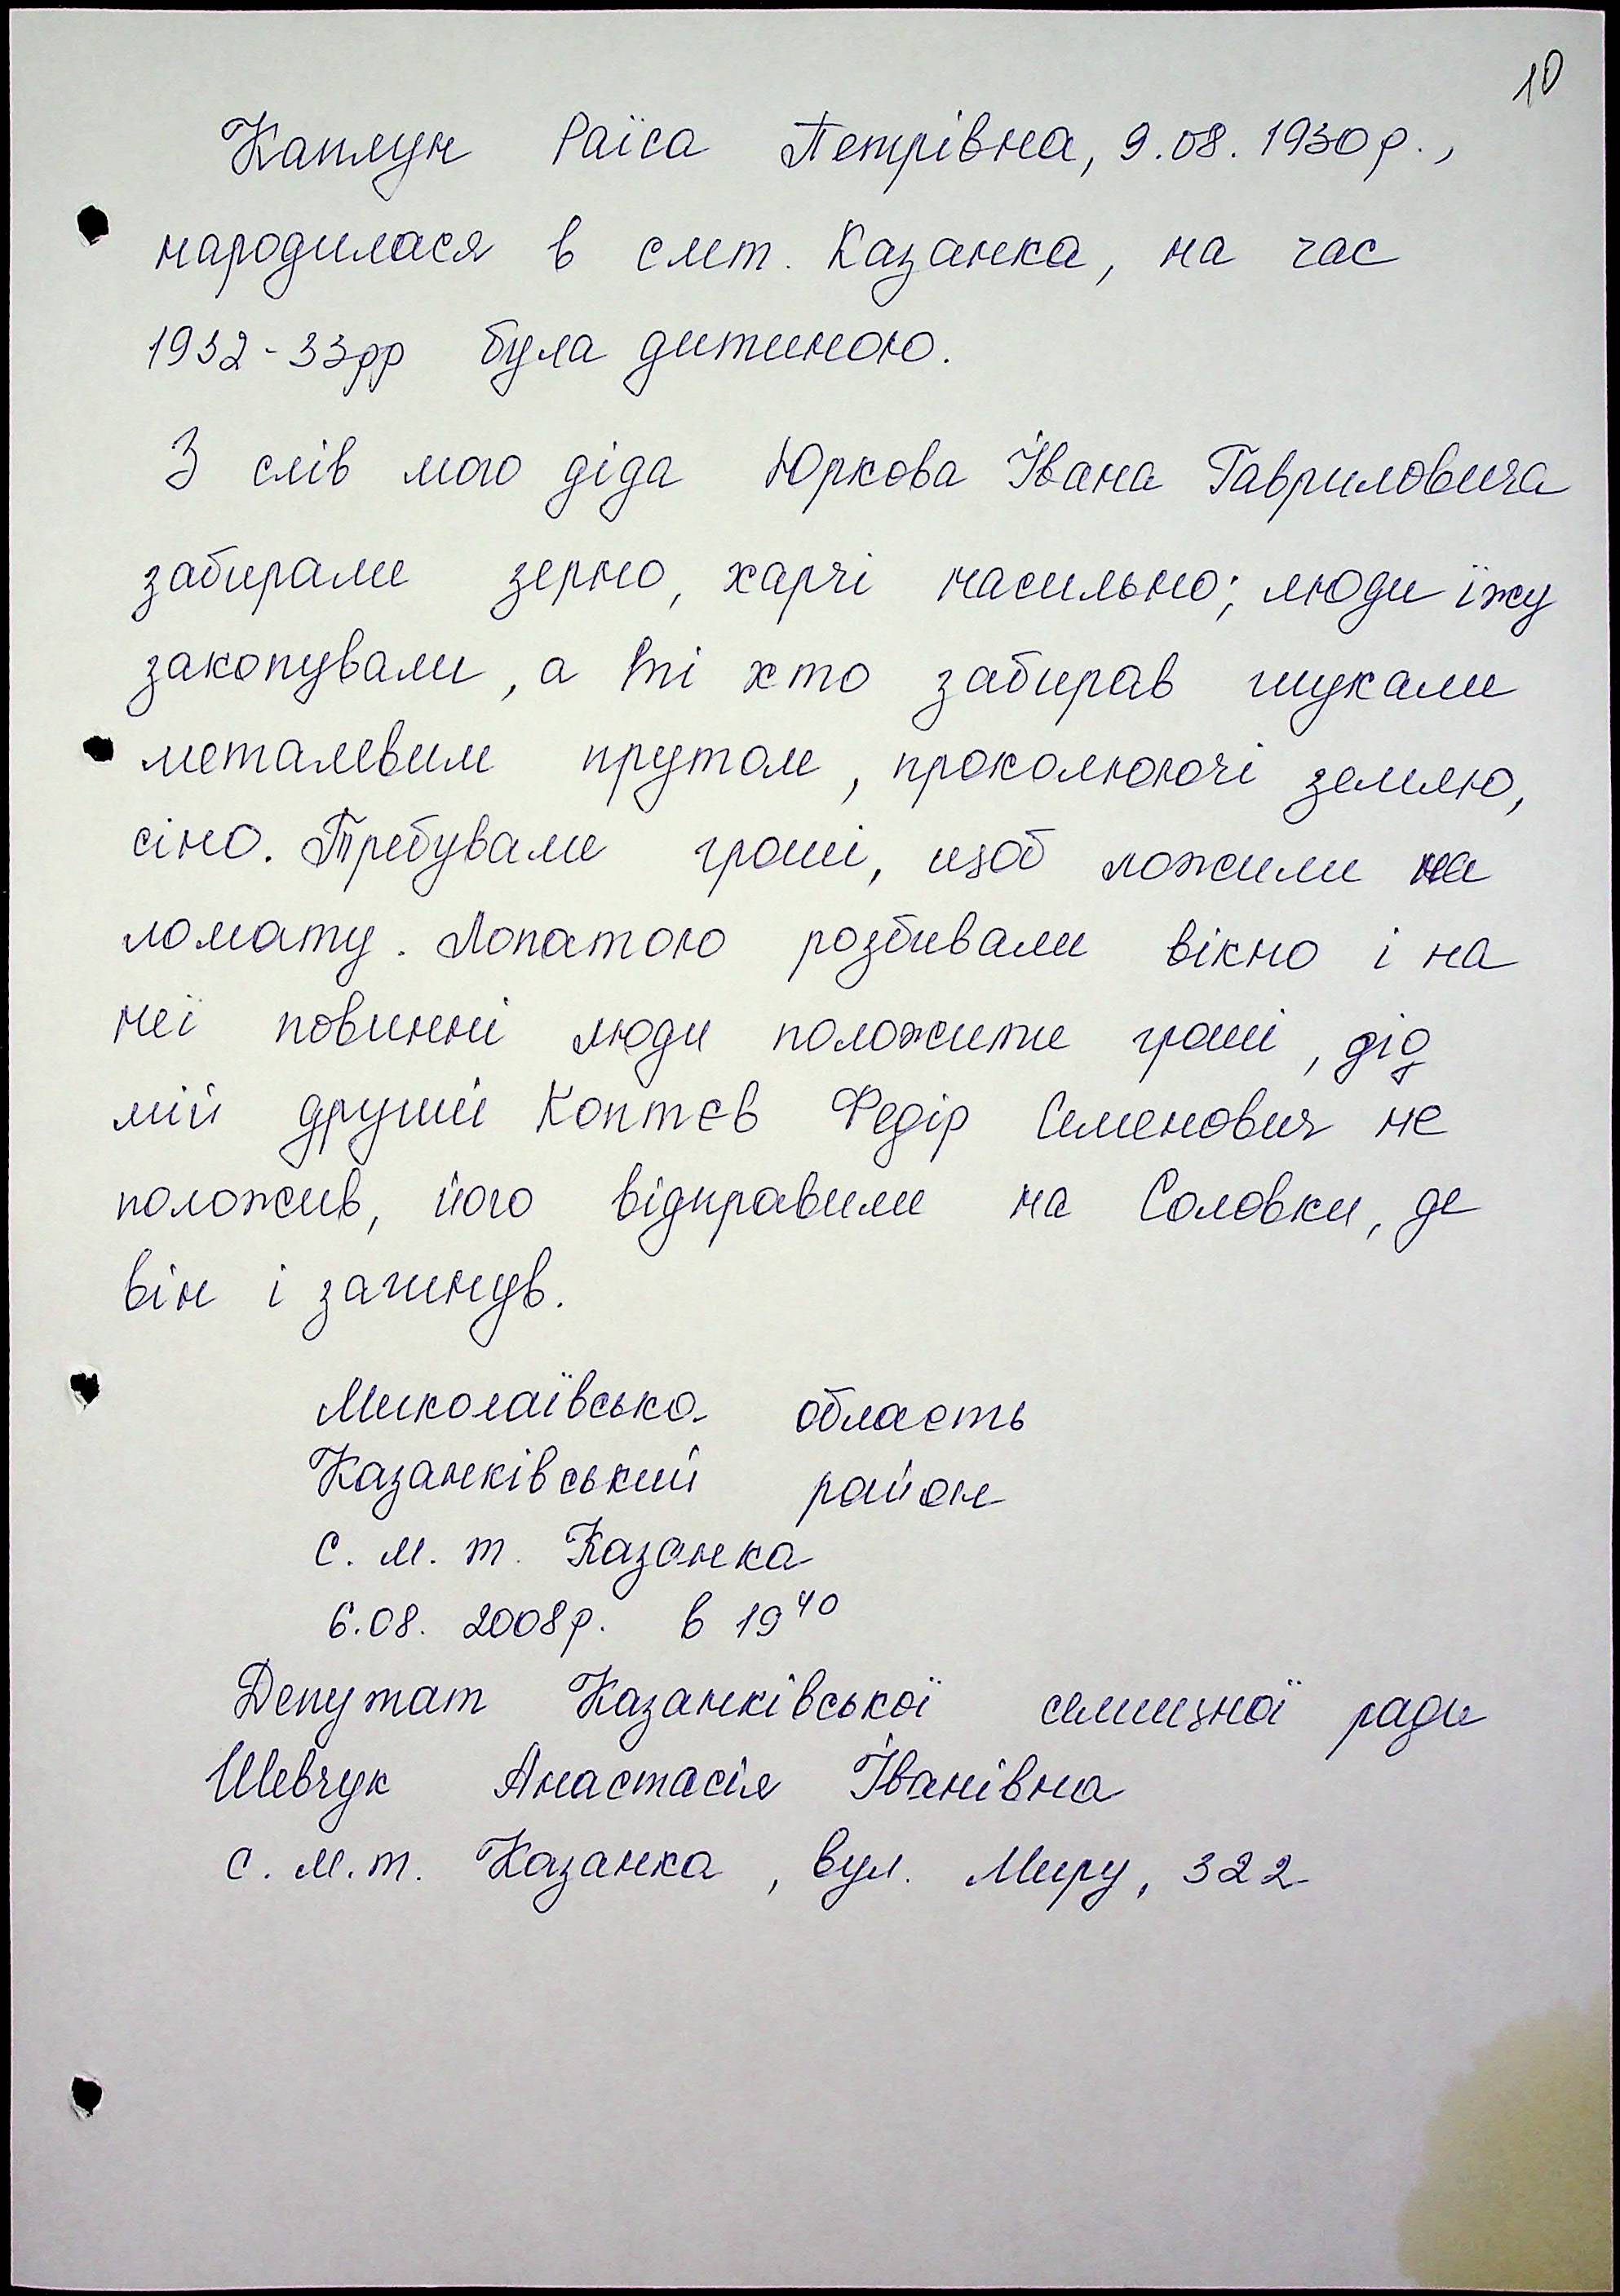 10
Каплун Раїса Петрівна, 9.08.1930р.,
народилася в смт. Казанка, на час
1932-33рр була дитиною.
З слів мого діда Юркова Івана Гавриловича
забирали зерно, харчі насильно; люди їжу
закопували, а ті хто забирав шукали
металевим прутом, проколюючі землю,
сіно. Требували гроші, щоб ложили на
лопату. Лопатою розбивали вікно і на
неї повинні люди положити гроші, дід
мій другий Коптєв Федір Семенович не
положив, його відправили на Соловки, де
він і загинув.
Миколаївська область
Казанківський район
с. м. т. Казанка
6.08. 2008р. в 19⁴⁰
Депутат Казанківської селищної ради
Шевчук Анастасія Іванівна
с. м. т. Казанка, вул. Миру, 322